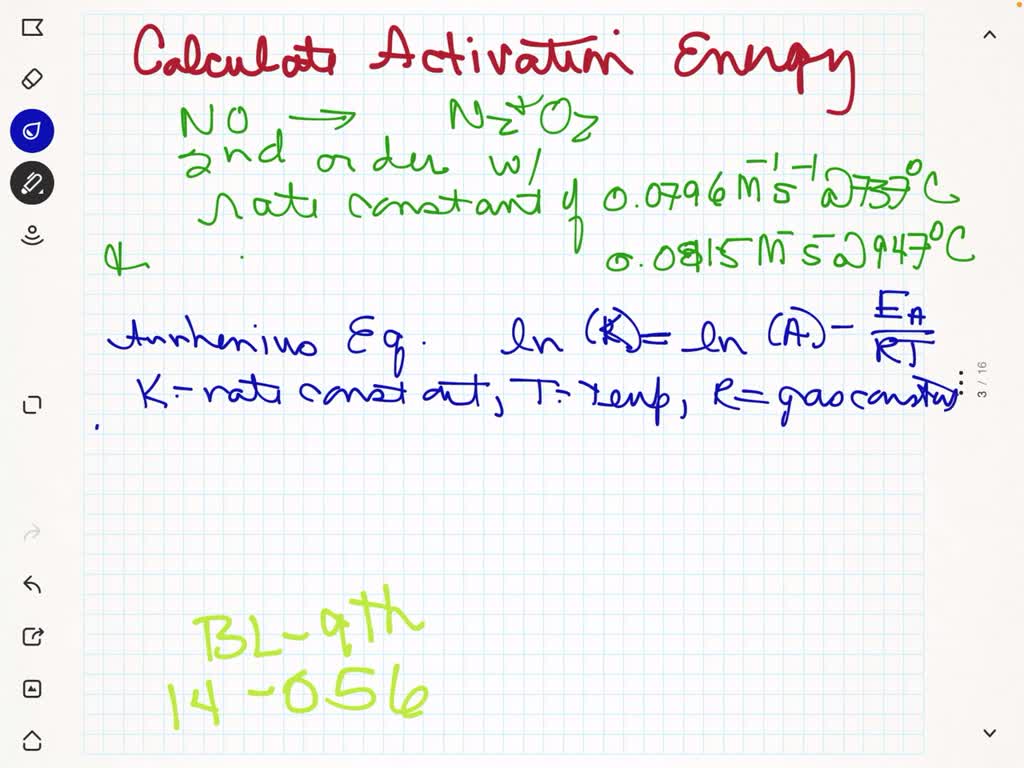 Calculate Activation Energy
NO → N2 + O2
2nd order w/
rate constant of 0.0796 M⁻¹s⁻¹ @ 737°C
& 0.0815 M⁻ s⁻ @ 947°C
Arrhenius Eq. ln (K) = ln (A) - EA/RT
K = rate constant, T = Temp, R = gas constant
3 / 16
BL-9th
14-056